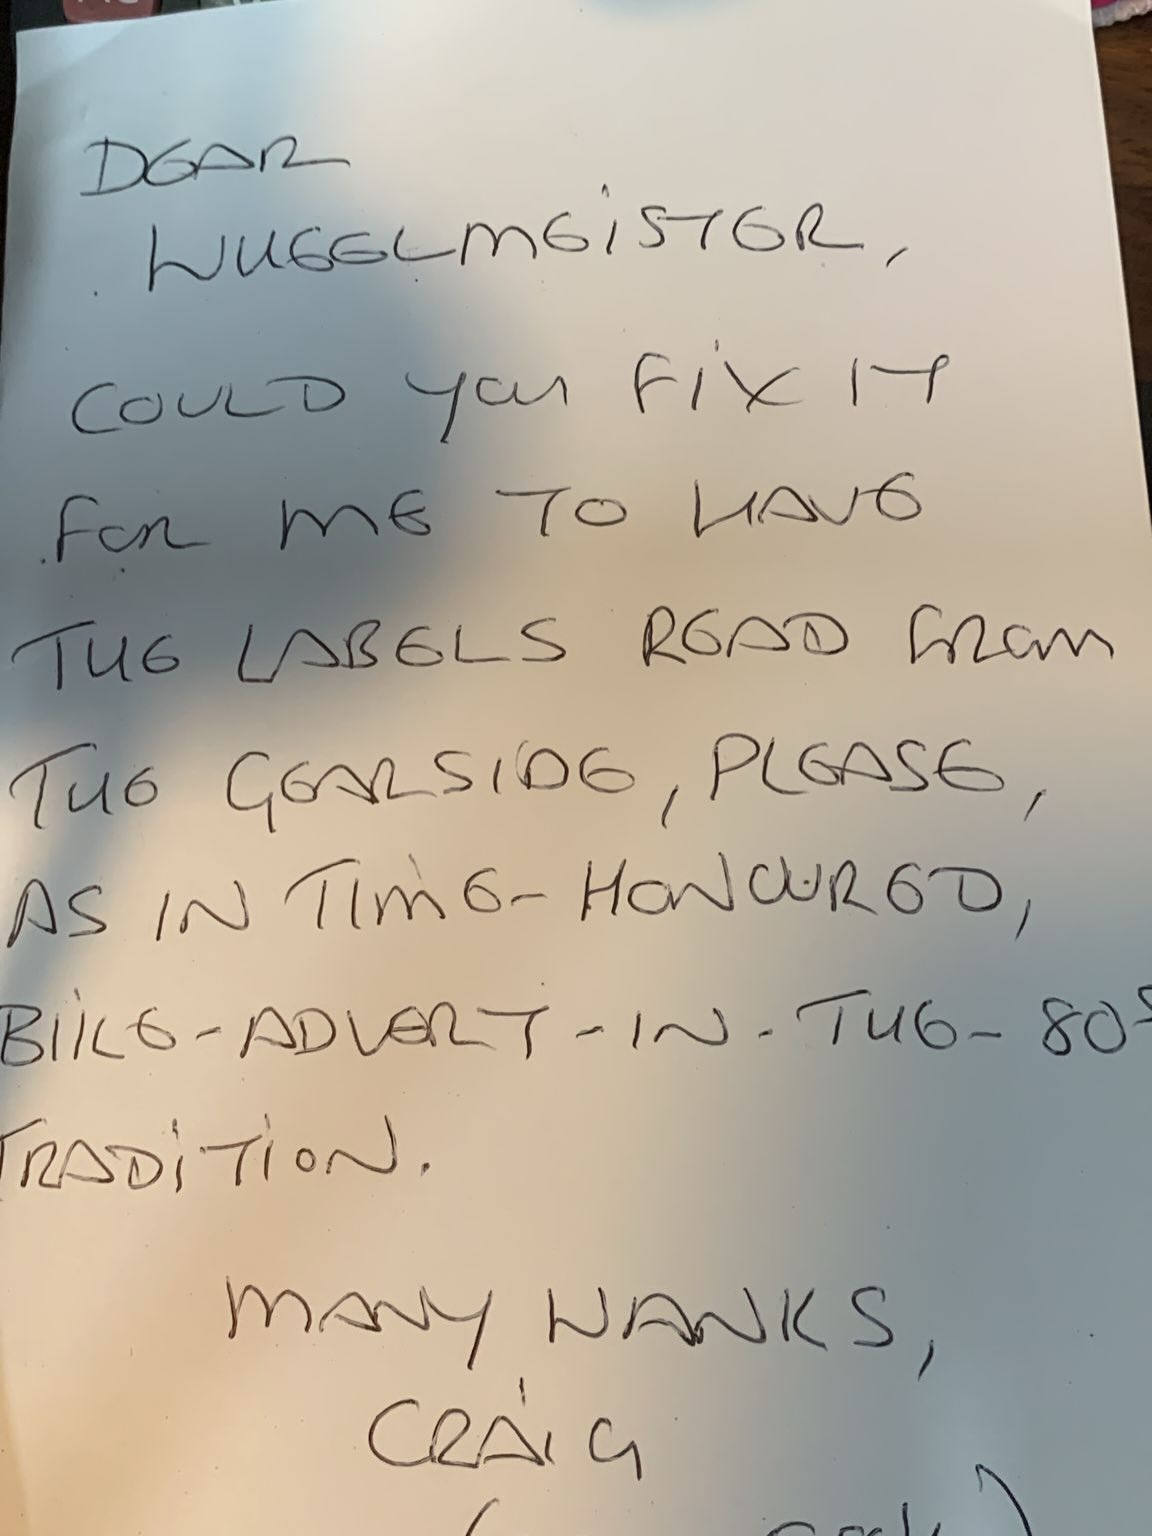 DEAR
WHEELMEISTER,
COULD YOU FIX IT
FOR ME TO HAVE
THE LABELS READ FROM
THE GEARSIDE, PLEASE,
AS IN TIME-HONOURED,
BIKE-ADVERT-IN-THE-80S
TRADITION.
MANY WANKS,
CRAIG